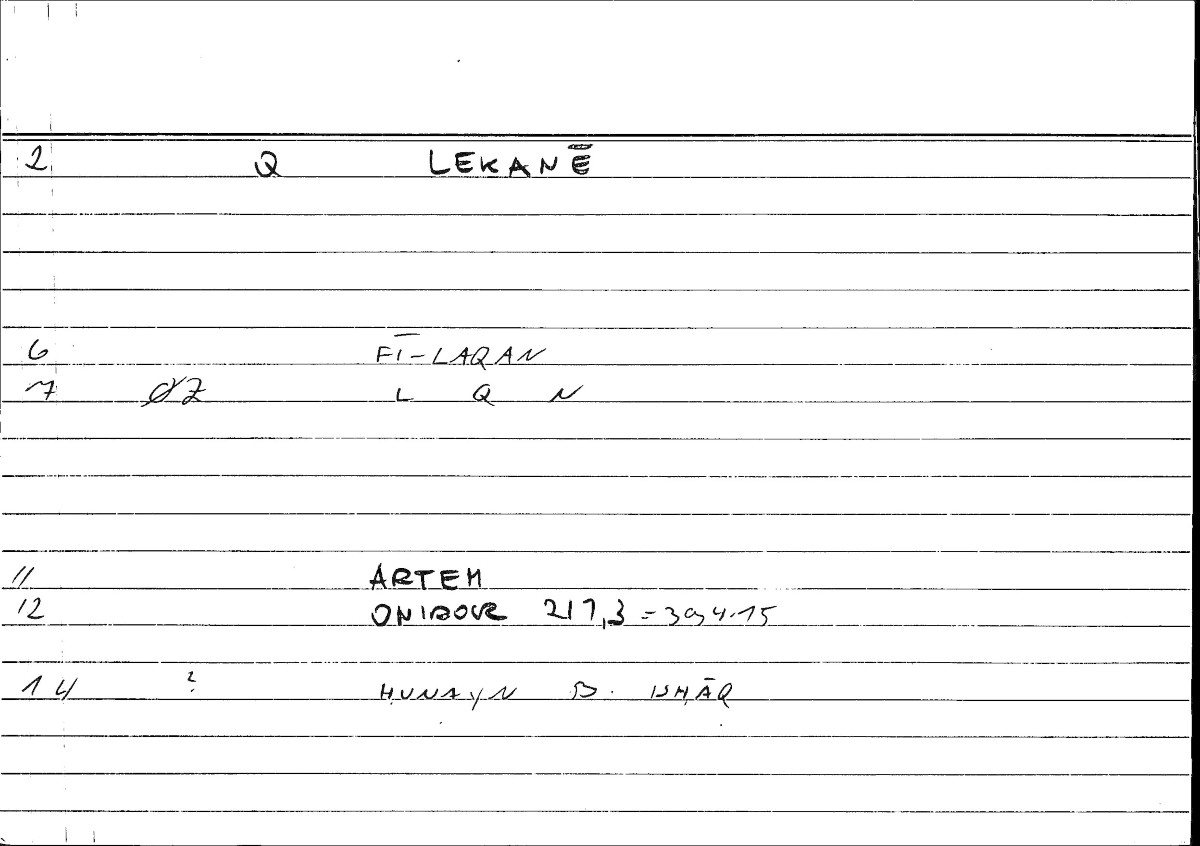 2 Q LEKANĒ
6 FĪ-LAQAN
7 ØZ L Q N
11 ARTEM
12 ONIROCR 217,3 =
14 ? ḤUNAYN B. ISḤĀQ